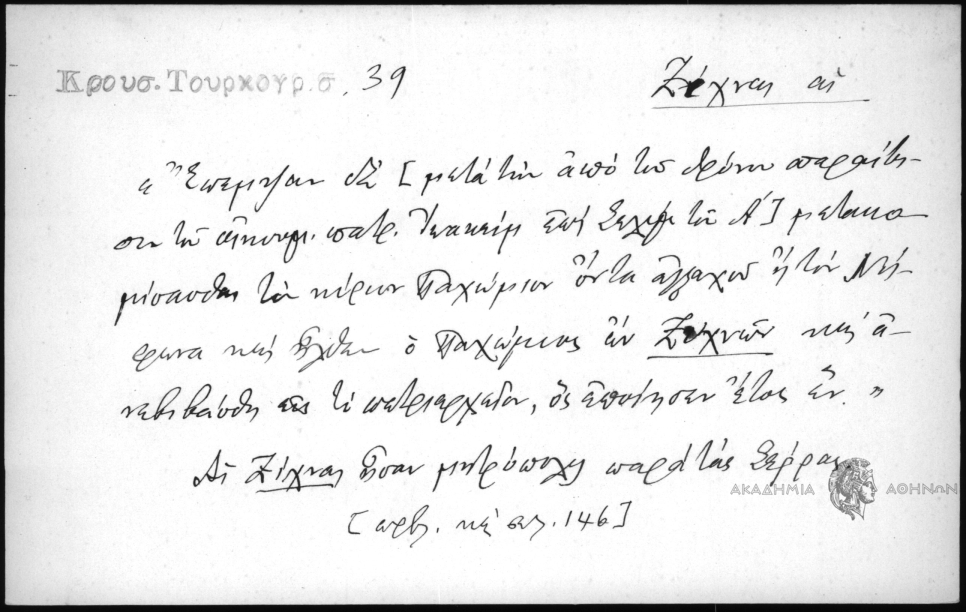 Κρουσ. Τουρκογρ. σ. 39
Ζίχναι αἱ
« Ἔπεμψαν δὲ [μετὰ τὴν ἀπὸ τοῦ θρόνου παραίτη-
σιν τοῦ οἰκουμ. πατρ. Ἰωακεὶμ ἐπὶ Σελὴμ τοῦ Α'] μετακο-
μίσασθαι τὸν κύριον Παχώμιον ὄντα ἀλλαχοῦ ἢ τὸν
καὶ ἦλθεν ὁ Παχώμιος ἐκ Ζιχνῶν καὶ ἀ-
νεβιβάσθη εἰς τὸ πατριαρχεῖον, ὃς ἐποίησεν ἔτος ἕν. »
Αἱ Ζίχναι ἦσαν μητρόπολις παρὰ τὰς Σέρρας.
[πρβ. καὶ σελ. 146]
ΑΚΑΔΗΜΙΑ ΑΘΗΝΩΝ